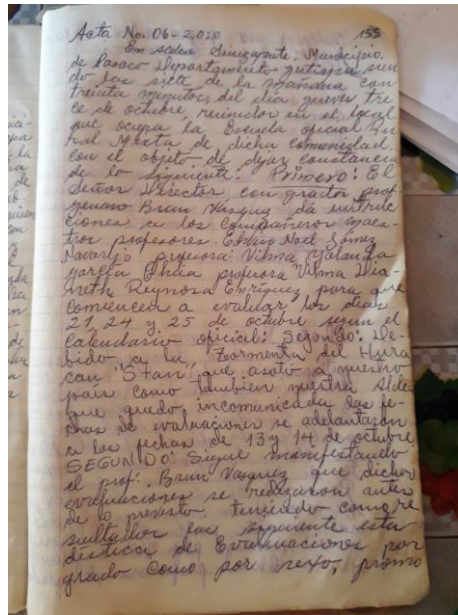 Acta No. 06-2,020 155
En aldea Singapute, Municipio
de Pasaco Departamento Jutiapa sien
do las siete de la mañana con
treinta minutos del día jueves tre
ce de octubre, reunidos en el local
que ocupa la Escuela oficial Ru
ral Mixta de dicha comunidad
con el objeto de dejar constancia
de lo siguiente: Primero: El
Señor Director con grado prof.
Brun Vásquez dá instruc
ciones a los compañeros maes-
tros profesores: Noel Gómez
Navarijo profesora: Vilma Yolanda
García profesora Vilma Dia-
neth Reynosa Enríquez para que
comiencen a evaluar los días
21, 24 y 25 de octubre según el
Calendario oficial: Segundo: De-
bido a la Tormenta del Hura
can "Stan" que asotó a nuestro
país como también nuestra Aldea
que quedó incomunicada las fe-
chas de evaluaciones se adelantaron
a las fechas de 13 y 14 de octubre
SEGUNDO: Sigue manifestando
el prof. Brun Vasquez que dichas
evaluaciones se realizaron antes
de lo previsto teniendo como re
sultados la siguiente esta
distica de Evaluaciones por
grado como por sexo, promo